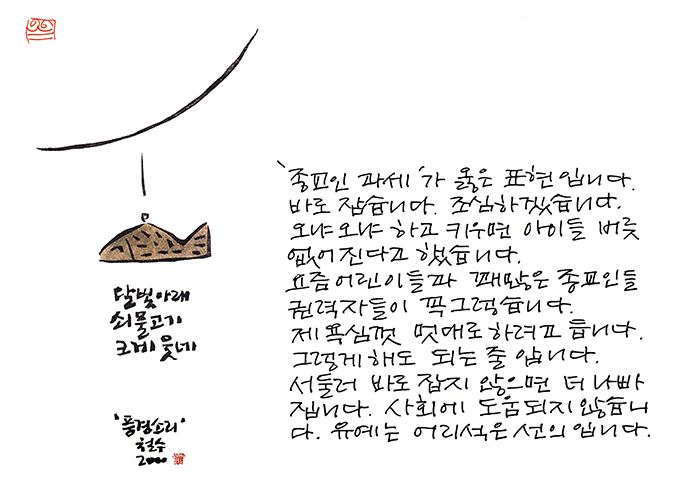 달빛아래
쇠물고기
크게 웃네
'풍경소리'
철수
2000
'종교인 과세'가 옳은 표현입니다.
바로 잡습니다. 조심하겠습니다.
오냐오냐 하고 키우면 아이들 버릇
없어진다고 했습니다.
요즘어린이들과 꽤많은 종교인들
권력자들이 꼭그렇습니다.
제 욕심껏 멋대로하려고 듭니다.
그렇게해도 되는 줄 압니다.
서둘러 바로 잡지 않으면 더 나빠
집니다. 사회에 도움되지 않습니
다. 유예는 어리석은 선의 입니다.